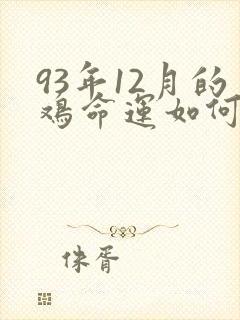 93年12月的
鸡命运如何
侏胥